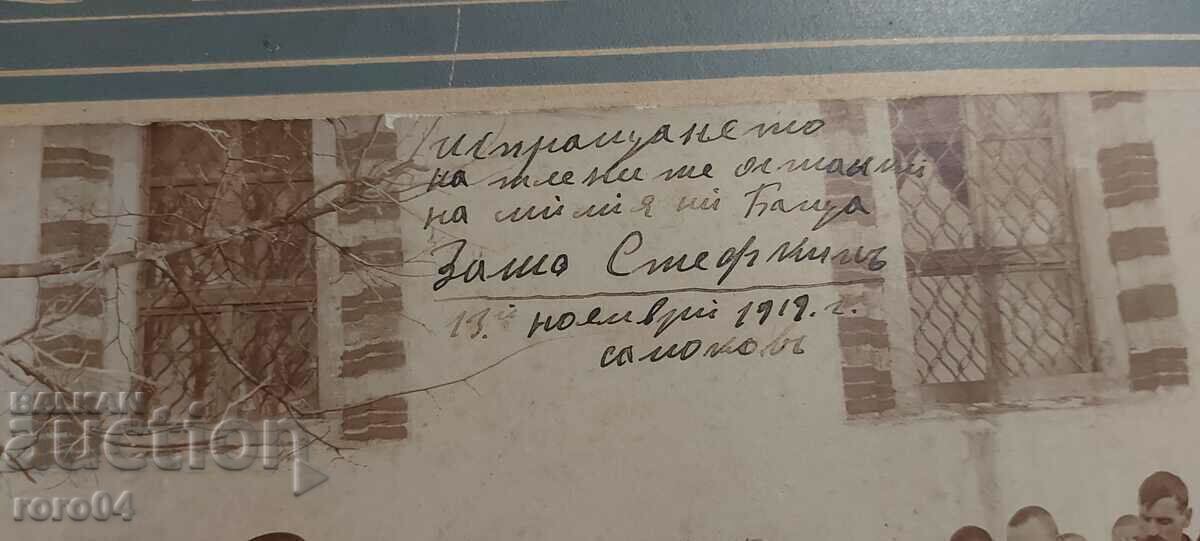 испращането
на тлените останки
на милия ни Баща
Зашо Стефкинъ
13й ноемврй 1919. г.
самоковъ
BALKAN
auction
roro04